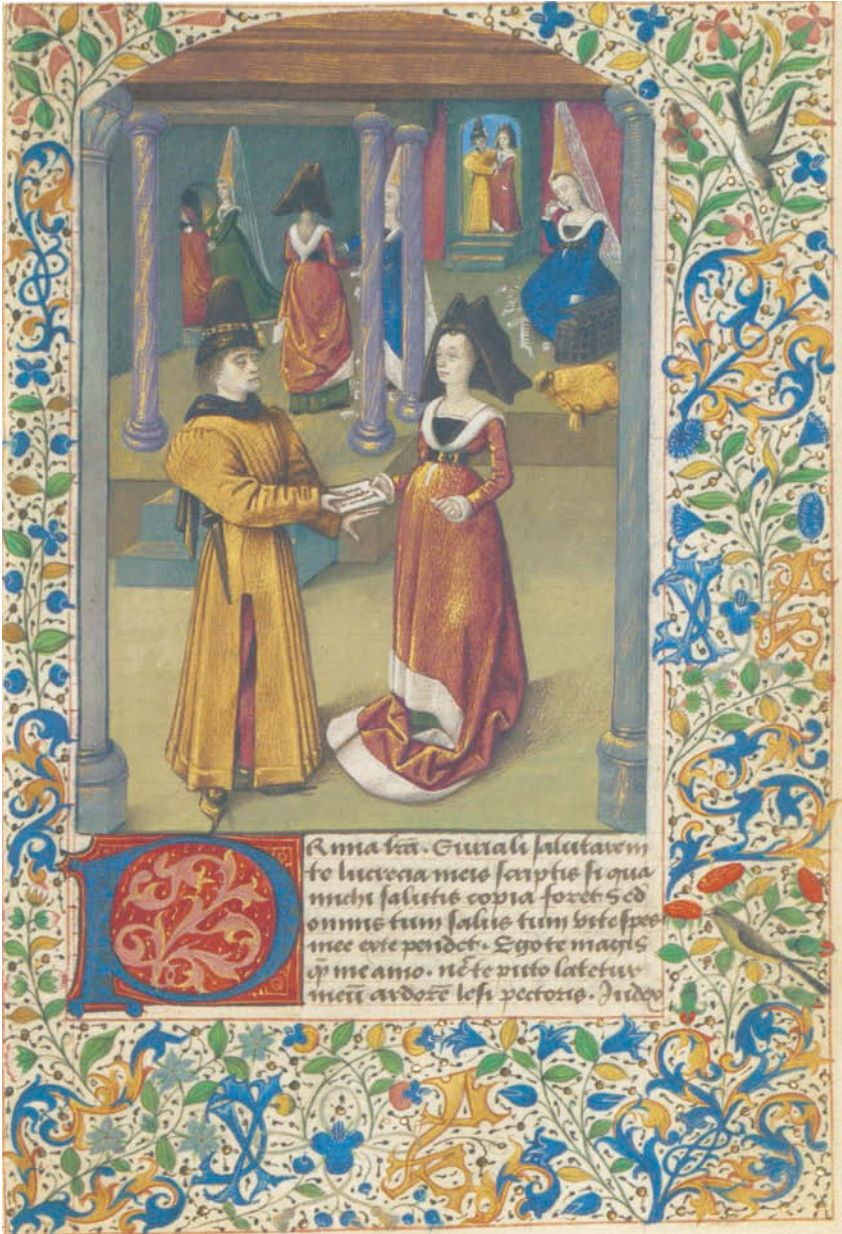 PRima lrã. Euriali salutarem
te lucrecia meis scriptis si qua
michi salutis copia foret Sed
omnis tum salus tum vite spes
mee exte pendet. Ego te magis
qz me amo. nec te puto latetur
meũ ardorẽ lesi pectoris. Judex